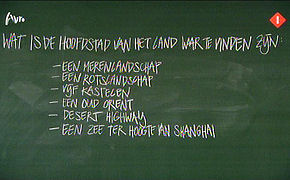 Avro
1
WAT IS DE HOOFDSTAD VAN HET LAND WAR TE VINDEN ZIJN:
- EEN MERENLANDSCHAP
- EEN ROTSLANDSCHAP
- VIJF KASTELEN
- EEN OUD ORENT
- DESERT HIGHWAY
- EEN ZEE TER HOOGTE VAN SHANGHAI